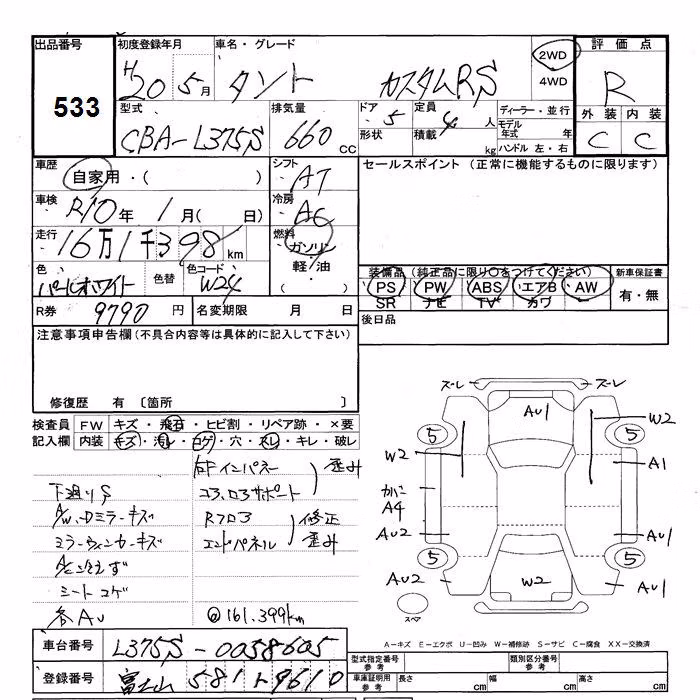 出品番号 初度登録年月 車名・グレード 評価点
533 H20 5月 タント カスタムRS 2WD 4WD R
型式 排気量 ドア 定員 ディーラー・並行 外装 内装
CBA-L375S 660 CC 5 4 人 モデル年式 年 C C
形状 積載 kg ハンドル 左・右
車歴 自家用・( ) シフト AT セールスポイント (正常に機能するものに限ります)
車検 R10年 1月( 日) 冷房 AC
走行 16万1千398km 燃料 ガソリン・軽油・( )
色 パールホワイト 色替 色コード W24
装備品 (純正品に限り○をつけてください) 新車保証書
PS PW ABS エアB AW 有・無
SR ナビ TV カワ
R券 9790 円 名変期限 月 日 後日品
注意事項申告欄(不具合内容等は具体的に記入して下さい)
修復歴 有 〔箇所 〕
検査員 FW キズ・飛石・ヒビ割・リペア跡・×要
記入欄 内装 キズ・汚レ・コゲ・穴・スレ・キレ・破レ
右Fインパネー 歪み
下廻りS コアロアサポート
A/W、Dミラーキズ Rフロア 修正
ミラーウィンカーキズ エンドパネル 歪み
A/Cひえず
シートコゲ
各AU @161,399km
ズーレ ズーレ
AU1
W2
5 5
W2 A1
A4
AU2 AU1
5 5
AU2 W2 AU1
スペア
A-キズ E-エクボ U-凹み W-補修跡 S-サビ C-腐食 XX-交換済
車台番号 L375S-0058605 型式指定番号 参考 類別区分番号 参考
登録番号 富士山 581 イ 9610 車庫証明用 参考 長さ cm 幅 cm 高さ cm